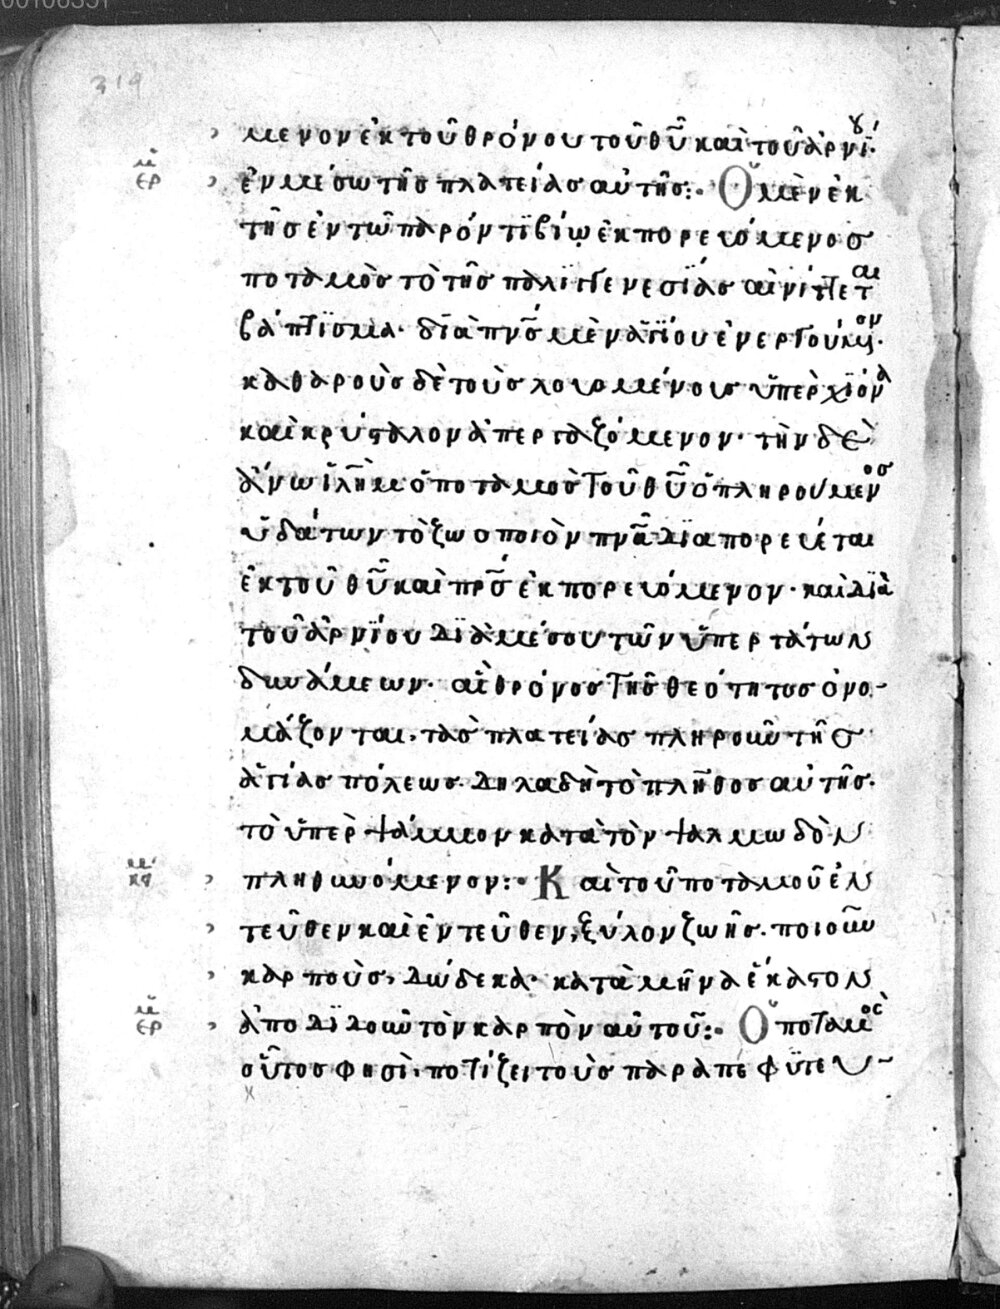 314
μενον ἐκ τοῦ θρόνου τοῦ θῦ καὶ τοῦ ἀρνίου.
κει
ερ
ἐν μέσω τῆσ πλατείασ αὐτῆσ:· Ὁ μὲν ἐκ
τῆσ ἐν τῶ παρόντϊ βίω ἐκπορευόμενοσ
ποταμὸσ τὸ τῆσ παλιγγενεσΐασ αἰνίττεται
βάπτϊσμα· δϊὰ πνσ μὲν ἁγΐου ἐνεργούμενον·
καθαροὺσ δὲ τοὺσ λουομένουσ ὑπὲρ χϊόνα
καὶ κρύσταλον ἀπεργαζόμενον· τὴν δὲ
ἄνω ϊλημ ὁ ποταμὸσ τοῦ θῦ ὁ πληρούμενοσ
ὑδάτων τὸ ζωοποιὸν πνᾶ διαπορεύεται
ἐκ τοῦ θῦ καὶ πρσ ἐκπορευόμενον· καὶ δϊὰ
τοῦ ἀρνΐου δϊὰ μέσου τῶν ὑπερτάτων
δυνάμεων· αἳ θρόνοσ τῆσ θεότητοσ ὀνο-
μάζονται, τὰσ πλατείασ πληροῦν τῆσ
ἁγίασ πόλεωσ. δηλαδὴ τὸ πλῆθοσ αὐτῆσ.
τὸ ὑπὲρ ψάμμον κατὰ τὸν ψαλμωδὸν
πληθυνόμενον:· Καὶ τοῦ ποταμοῦ ἐν
τεῦθεν καὶ ἐντεῦθεν, ξύλον ζωῆσ. ποιοῦν
καρποὺσ, δώδεκα· κατὰ μῆνα ἕκαστον
ερ
ἀποδϊδοῦν τὸν καρπὸν αὐτοῦ:· Ὁ ποταμὸσ
οὗτοσ φησὶ, ποτίζει τοὺσ παραπεφϋτευ-